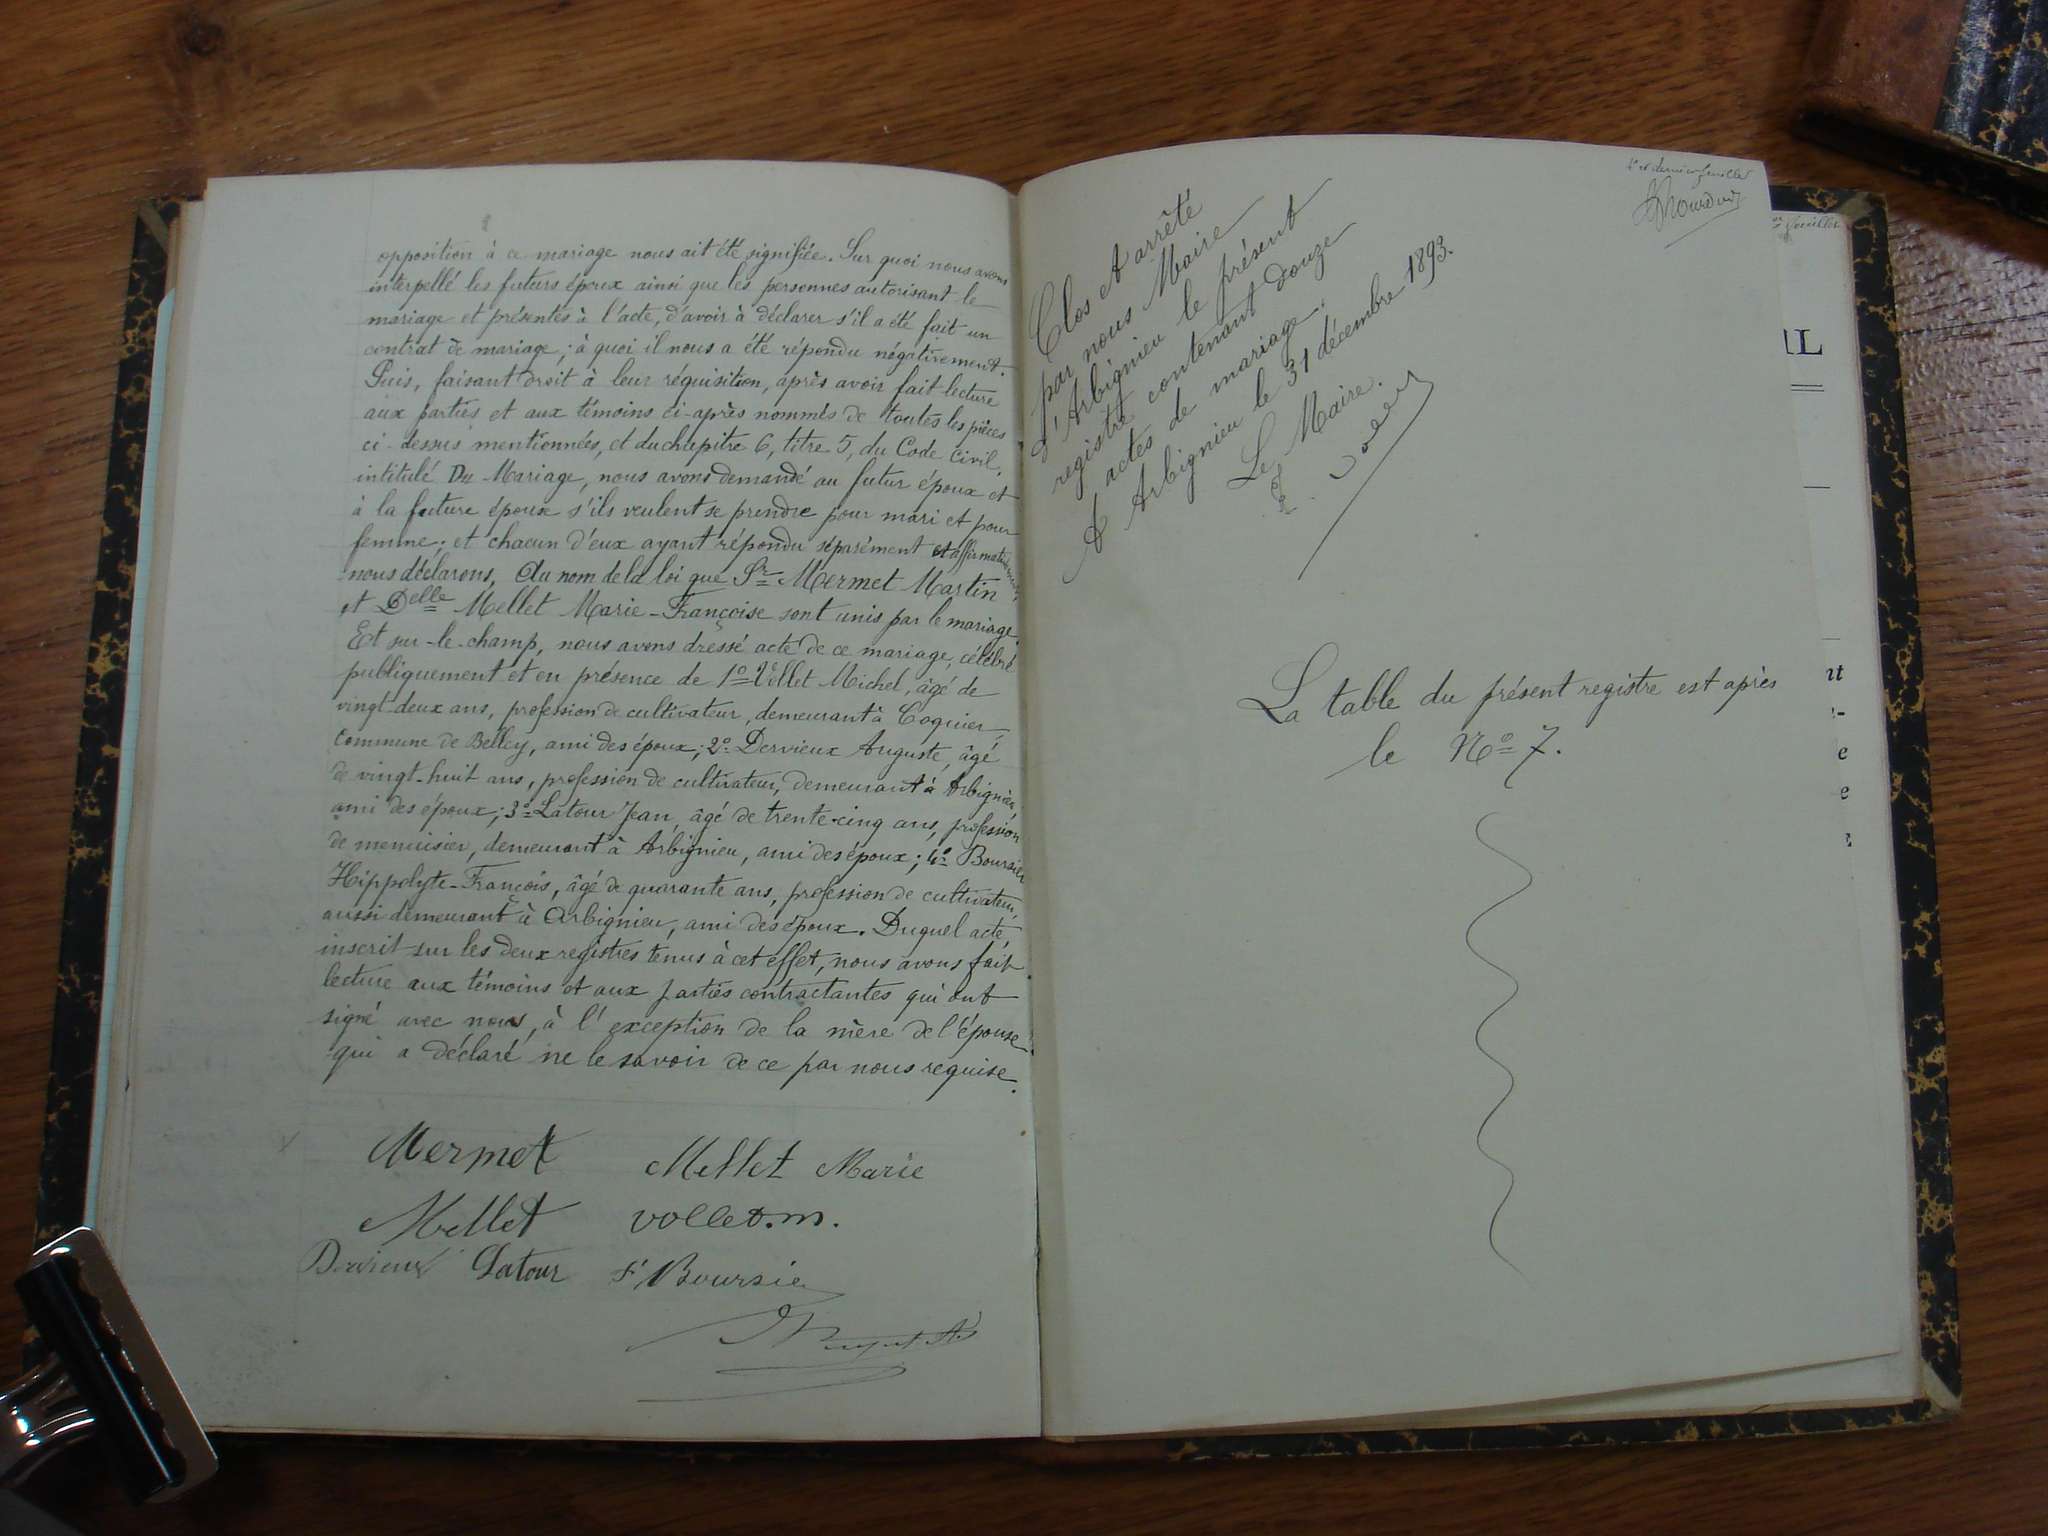 opposition à ce mariage nous ait été signifiée. Sur quoi nous avons
interpellé les futurs époux ainsi que les personnes autorisant le
mariage et présentes à l'acte, d'avoir à déclarer s'il a été fait un
contrat de mariage; à quoi il nous a été répondu négativement.
Puis, faisant droit à leur réquisition, après avoir fait lecture
aux parties et aux témoins ci-après nommés de toutes les pièces
ci-dessus mentionnées, et du chapitre 6, titre 5, du Code Civil,
intitulé Du Mariage, nous avons demandé au futur époux et
à la future épouse s'ils veulent se prendre pour mari et pour
femme; et chacun d'eux ayant répondu séparément et affirmativement,
nous déclarons, Au nom de la loi que Sr Mermet Martin
et Delle Mellet Marie-Françoise sont unis par le mariage.
Et sur-le-champ, nous avons dressé acte de ce mariage, célébré
publiquement et en présence de 1º Vollet Michel, âgé de
vingt-deux ans, profession de cultivateur, demeurant à Coquier,
commune de Belley, ami des époux; 2º Dervieux Auguste, âgé
de vingt-huit ans, profession de cultivateur, demeurant à Arbignieu,
ami des époux; 3º Latour Jean, âgé de trente-cinq ans, profession
de menuisier, demeurant à Arbignieu, ami des époux; 4º Boursier
Hippolyte-François, âgé de quarante ans, profession de cultivateur,
aussi demeurant à Arbignieu, ami des époux. Duquel acte,
inscrit sur les deux registres tenus à cet effet, nous avons fait
lecture aux témoins et aux parties contractantes qui ont
signé avec nous, à l'exception de la mère de l'épouse
qui a déclaré ne le savoir de ce par nous requise.
Mermet Mellet Marie
Mellet vollet.m.
Dervieux Latour F. Boursier
4e et dernier feuillet
Clos et arrêté
par nous Maire
d'Arbignieu le présent
registre contenant douze
actes de mariage.
A Arbignieu le 31 décembre 1893.
Le Maire.
La table du présent registre est après
le Nº 7.
feuillet
IL
nt
e
e